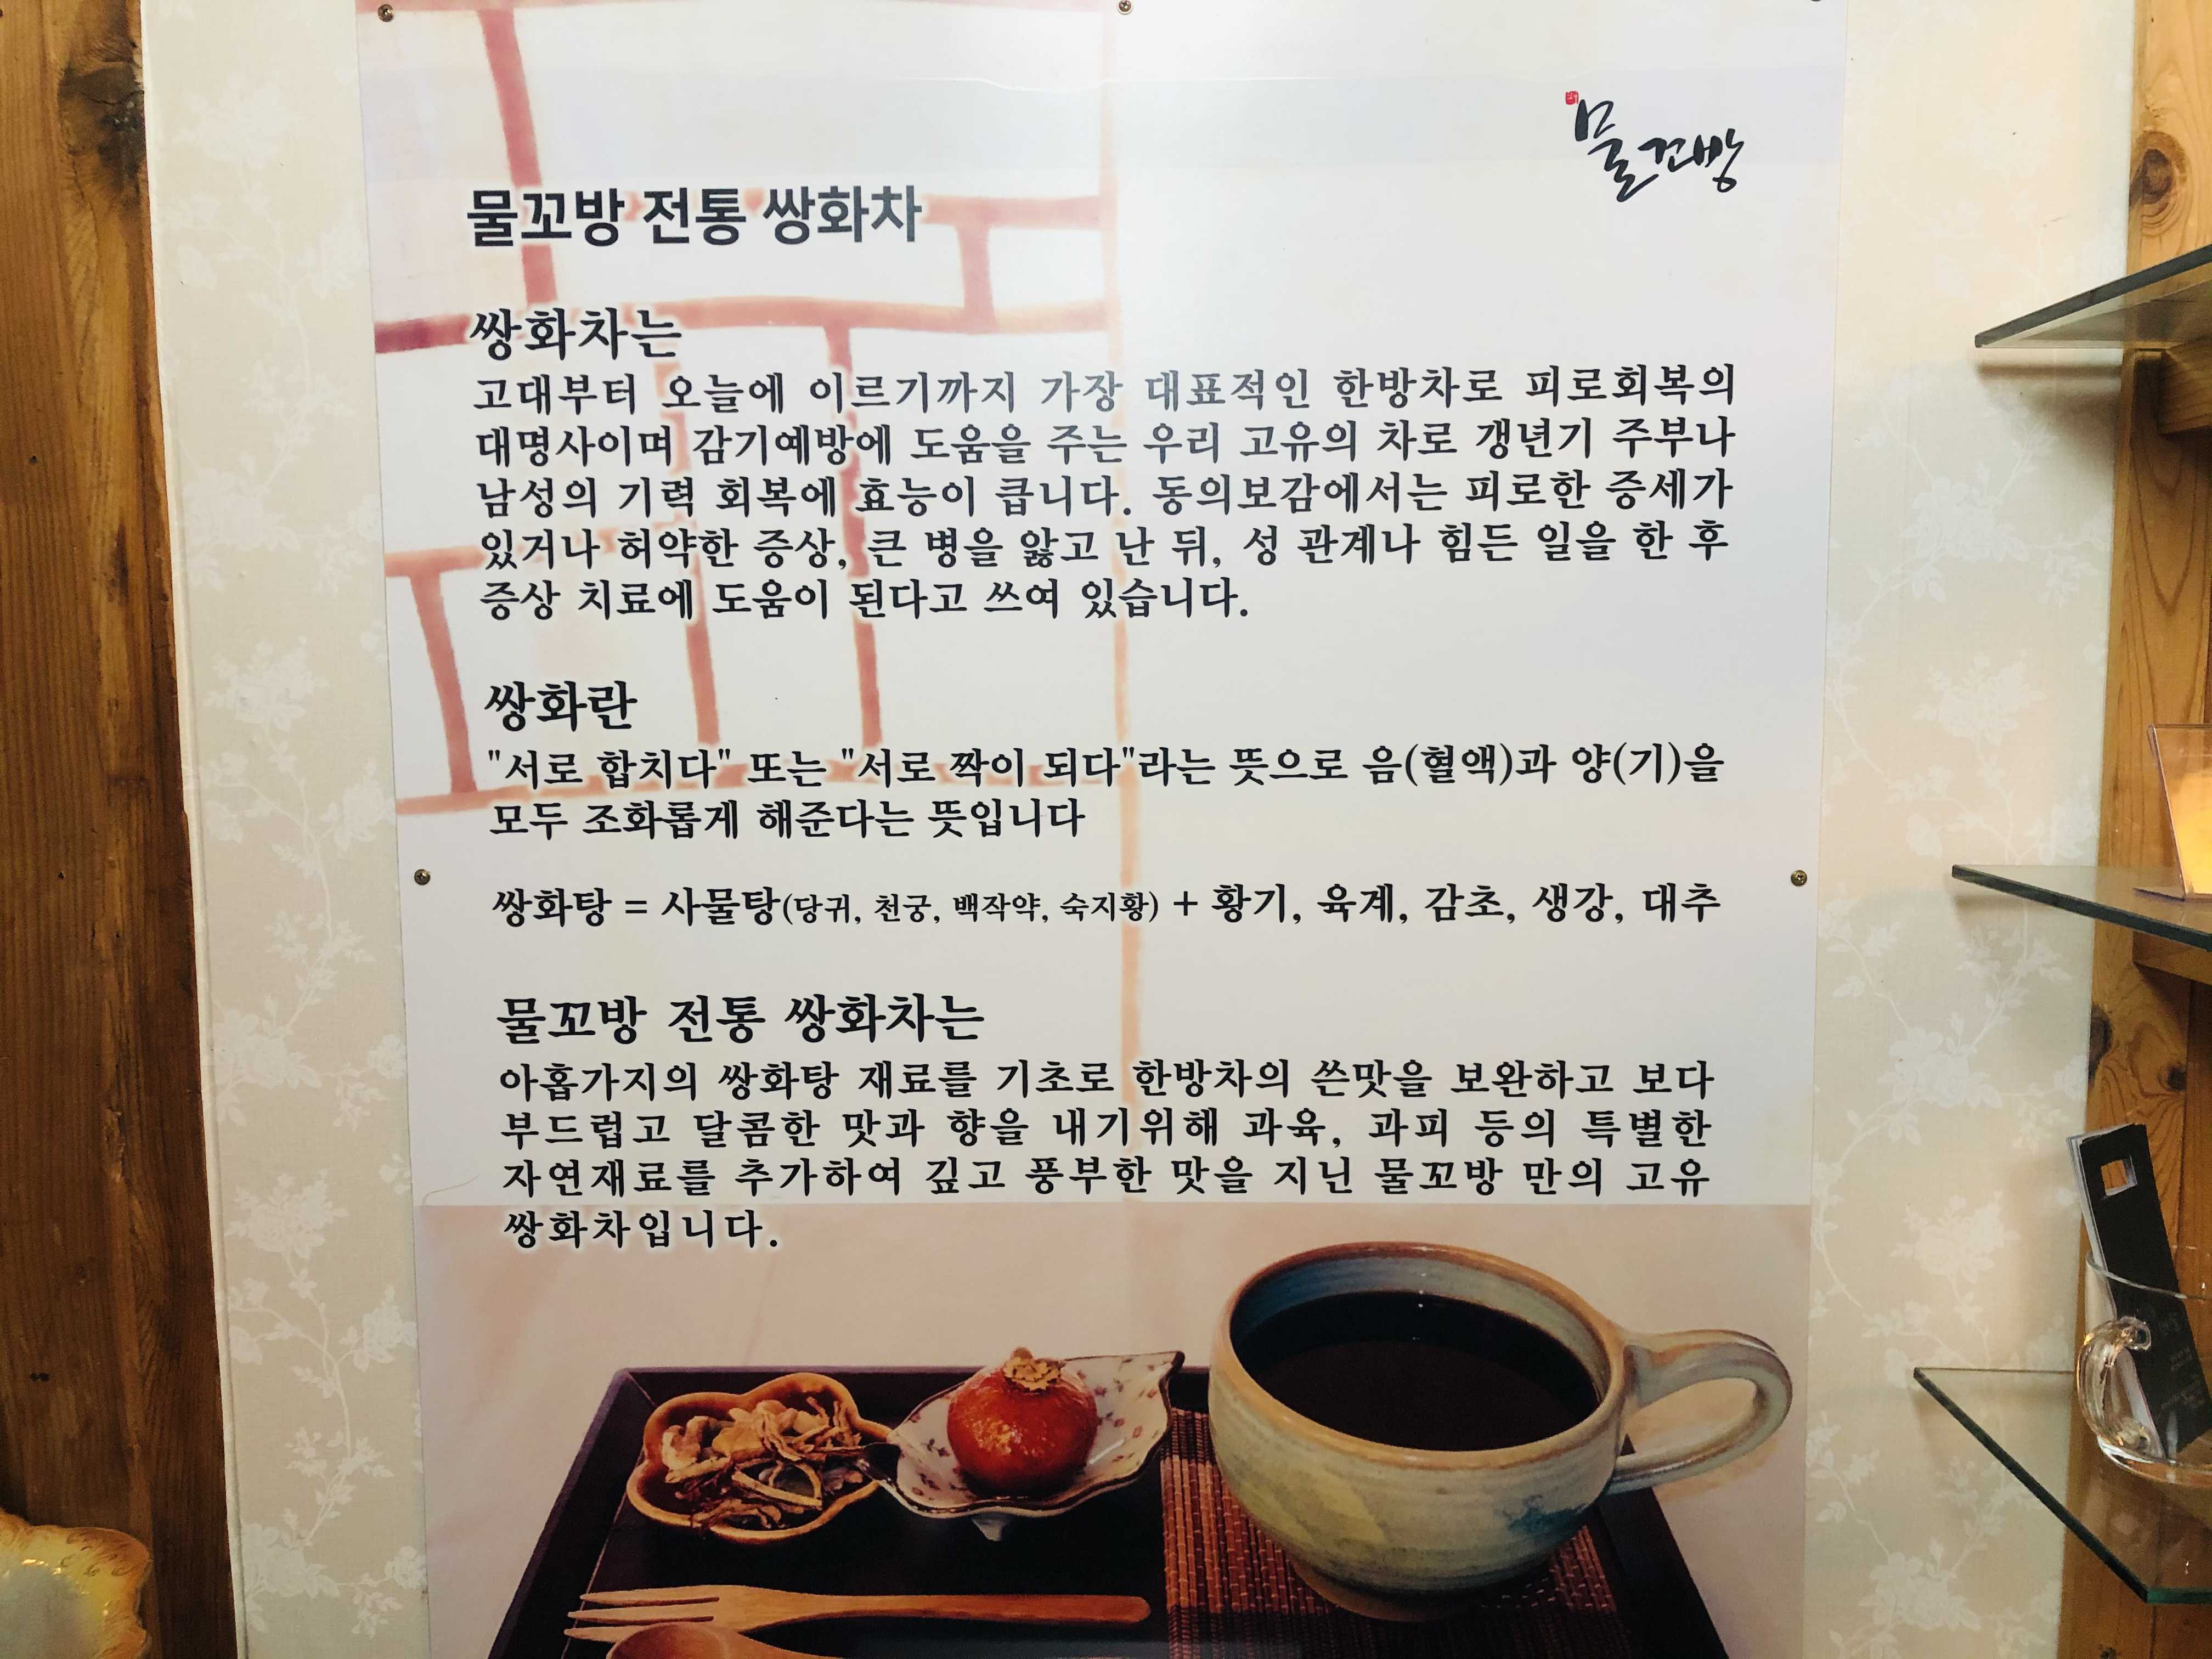 물꼬방
물꼬방 전통 쌍화차
쌍화차는
고대부터 오늘에 이르기까지 가장 대표적인 한방차로 피로회복의
대명사이며 감기예방에 도움을 주는 우리 고유의 차로 갱년기 주부나
남성의 기력 회복에 효능이 큽니다. 동의보감에서는 피로한 증세가
있거나 허약한 증상, 큰 병을 앓고 난 뒤, 성 관계나 힘든 일을 한 후
증상 치료에 도움이 된다고 쓰여 있습니다.
쌍화란
"서로 합치다" 또는 "서로 짝이 되다"라는 뜻으로 음(혈액)과 양(기)을
모두 조화롭게 해준다는 뜻입니다
쌍화탕 = 사물탕(당귀, 천궁, 백작약, 숙지황) + 황기, 육계, 감초, 생강, 대추
물꼬방 전통 쌍화차는
아홉가지의 쌍화탕 재료를 기초로 한방차의 쓴맛을 보완하고 보다
부드럽고 달콤한 맛과 향을 내기위해 과육, 과피 등의 특별한
자연재료를 추가하여 깊고 풍부한 맛을 지닌 물꼬방 만의 고유
쌍화차입니다.